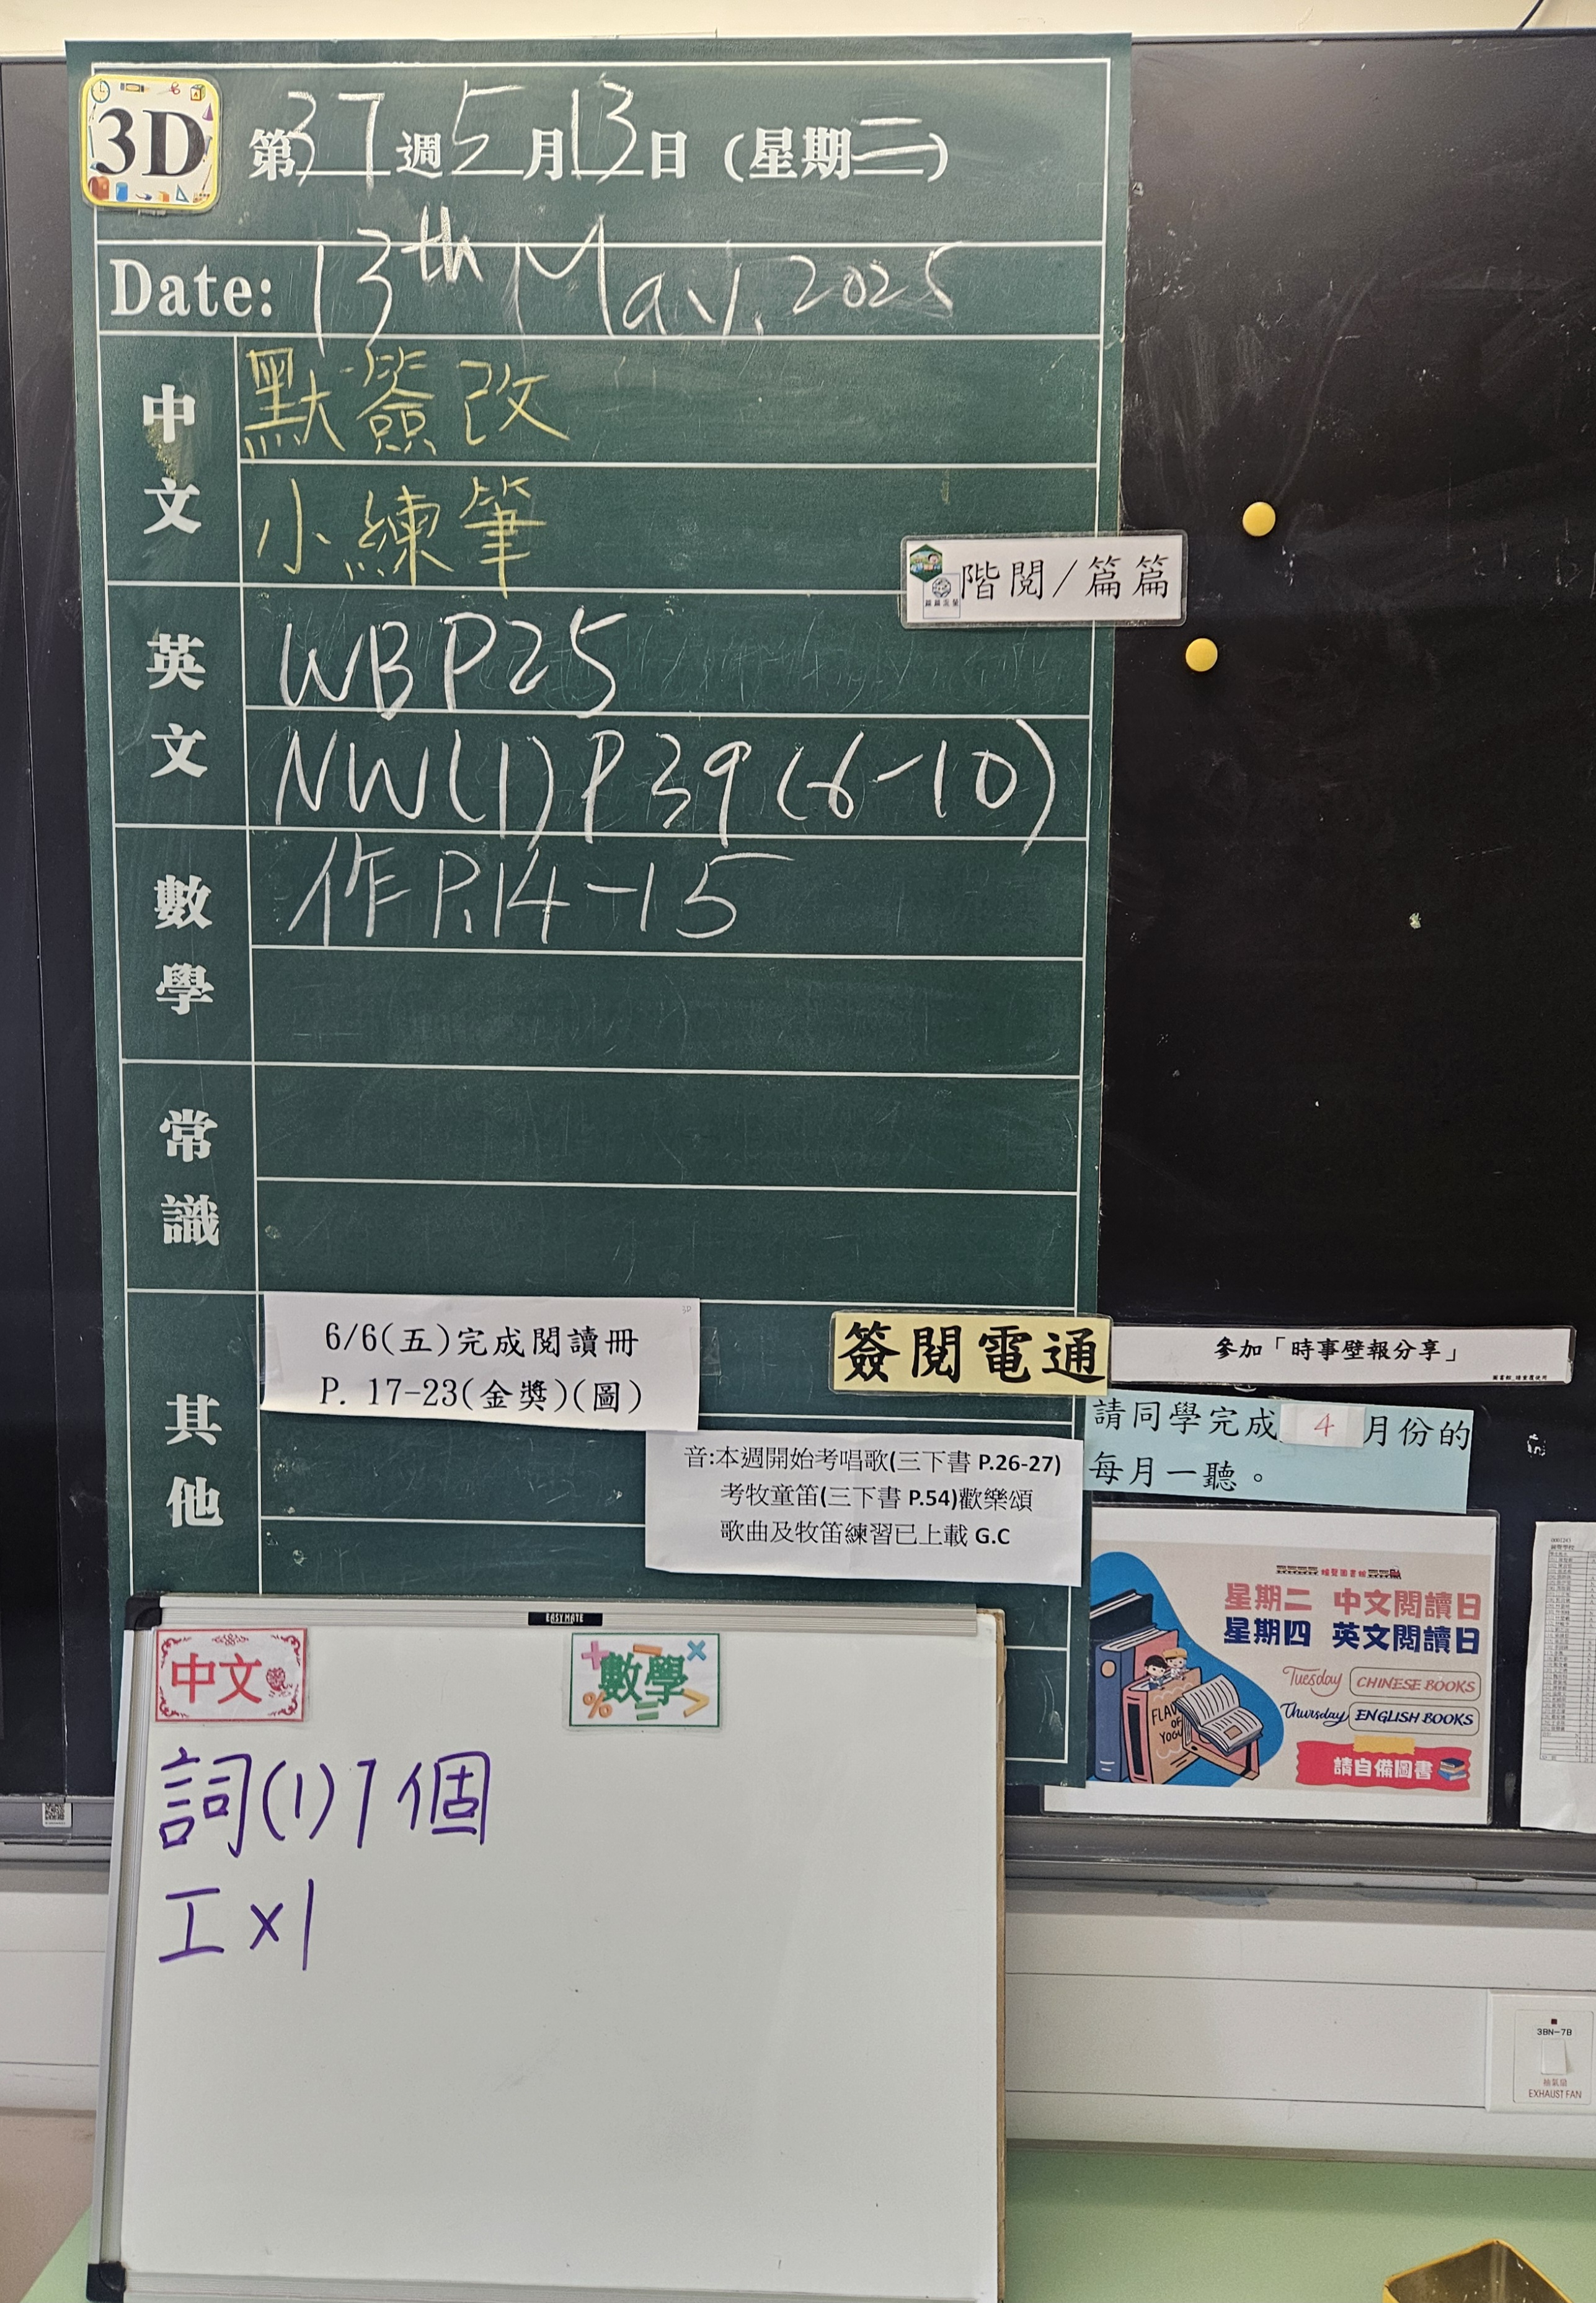 3D
第37週5月13日(星期二)
Date: 13th May, 2025
中文
默簽改
小練筆
階閱/篇篇
英文
WB P25
NW(1) P39 (6-10)
數學
作P.14-15
常識
其他
6/6(五)完成閱讀冊
P. 17-23(金獎)(圖)
簽閱電通
參加「時事壁報分享」
請同學完成4月份的
每月一聽。
音:本週開始考唱歌(三下書 P.26-27)
考牧童笛(三下書 P.54)歡樂頌
歌曲及牧笛練習已上載 G.C
星期二 中文閱讀日
星期四 英文閱讀日
Tuesday CHINESE BOOKS
Thursday ENGLISH BOOKS
FLAV
OF
YOGU
請自備圖書
EASYMATE
中文
數學
詞(1)7個
工×1
3BN-7B
抽氣扇
EXHAUST FAN